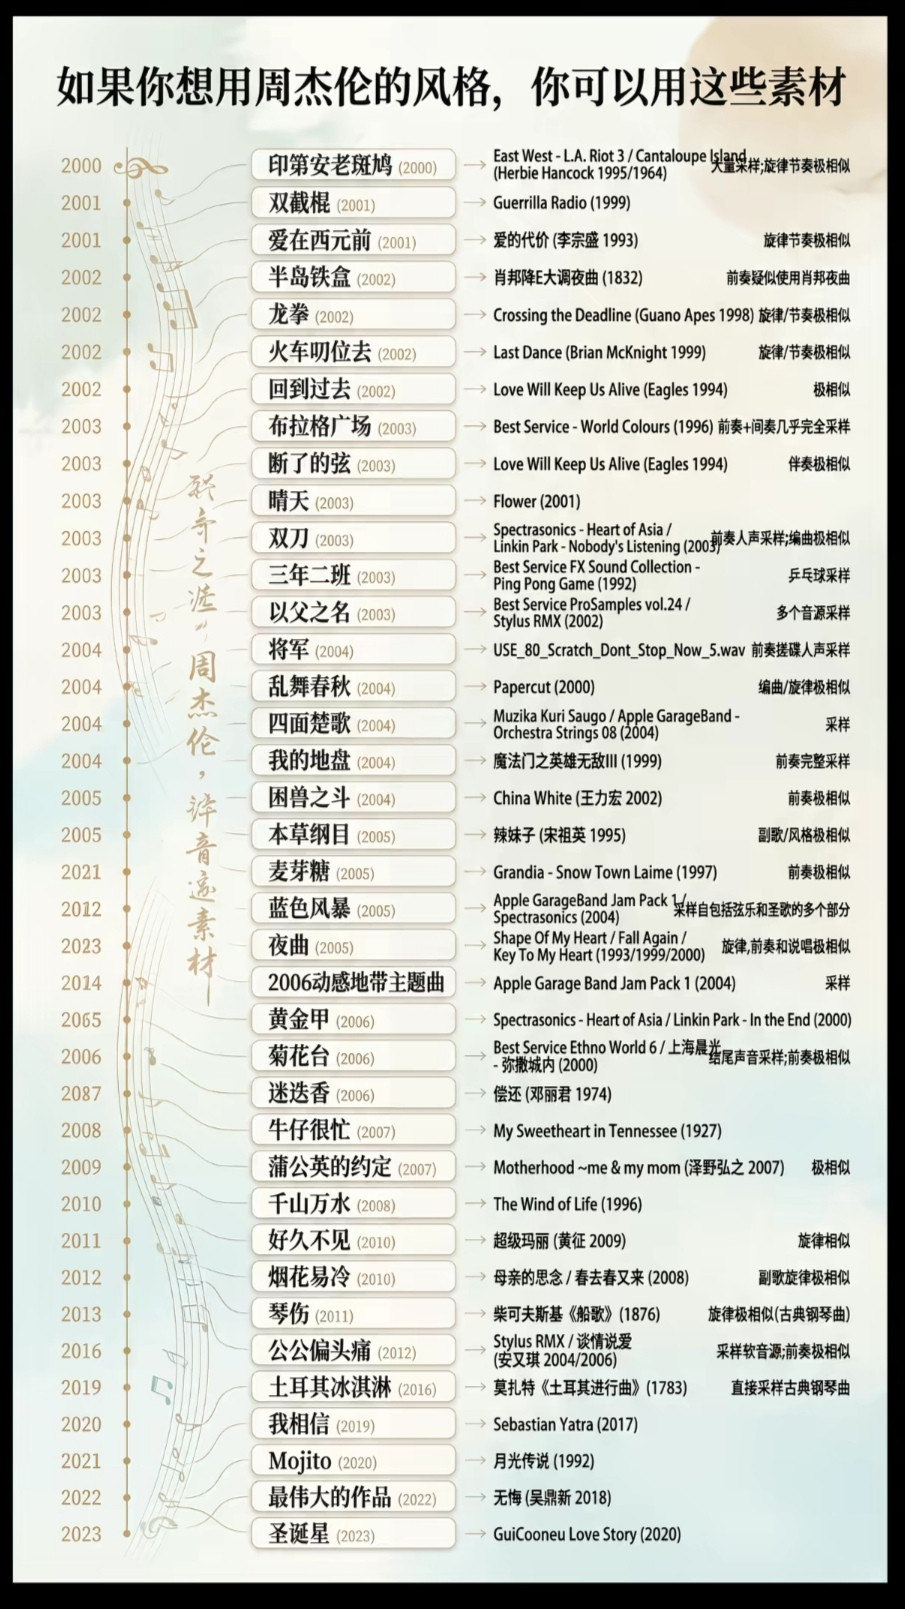 如果你想用周杰伦的风格，你可以用这些素材
2000 印第安老斑鸠 (2000) → East West - L.A. Riot 3 / Cantaloupe Island
(Herbie Hancock 1995/1964) 大量采样;旋律节奏极相似
2001 双截棍 (2001) → Guerrilla Radio (1999)
2001 爱在西元前 (2001) → 爱的代价 (李宗盛 1993) 旋律节奏极相似
2002 半岛铁盒 (2002) → 肖邦降E大调夜曲 (1832) 前奏疑似使用肖邦夜曲
2002 龙拳 (2002) → Crossing the Deadline (Guano Apes 1998) 旋律/节奏极相似
2002 火车叨位去 (2002) → Last Dance (Brian McKnight 1999) 旋律/节奏极相似
2002 回到过去 (2002) → Love Will Keep Us Alive (Eagles 1994) 极相似
2003 布拉格广场 (2003) → Best Service - World Colours (1996) 前奏+间奏几乎完全采样
2003 断了的弦 (2003) → Love Will Keep Us Alive (Eagles 1994) 伴奏极相似
2003 晴天 (2003) → Flower (2001)
2003 双刀 (2003) → Spectrasonics - Heart of Asia /
Linkin Park - Nobody's Listening (2003) 前奏人声采样;编曲极相似
2003 三年二班 (2003) → Best Service FX Sound Collection -
Ping Pong Game (1992) 乒乓球采样
2003 以父之名 (2003) → Best Service ProSamples vol.24 /
Stylus RMX (2002) 多个音源采样
2004 将军 (2004) → USE_80_Scratch_Dont_Stop_Now_5.wav 前奏搓碟人声采样
2004 乱舞春秋 (2004) → Papercut (2000) 编曲/旋律极相似
2004 四面楚歌 (2004) → Muzika Kuri Saugo / Apple GarageBand -
Orchestra Strings 08 (2004) 采样
2004 我的地盘 (2004) → 魔法门之英雄无敌III (1999) 前奏完整采样
2005 困兽之斗 (2004) → China White (王力宏 2002) 前奏极相似
2005 本草纲目 (2005) → 辣妹子 (宋祖英 1995) 副歌/风格极相似
2021 麦芽糖 (2005) → Grandia - Snow Town Laime (1997) 前奏极相似
2012 蓝色风暴 (2005) → Apple GarageBand Jam Pack 1 /
Spectrasonics (2004) 采样自包括弦乐和圣歌的多个部分
2023 夜曲 (2005) → Shape Of My Heart / Fall Again /
Key To My Heart (1993/1999/2000) 旋律,前奏和说唱极相似
2014 2006动感地带主题曲 → Apple Garage Band Jam Pack 1 (2004) 采样
2065 黄金甲 (2006) → Spectrasonics - Heart of Asia / Linkin Park - In the End (2000)
2006 菊花台 (2006) → Best Service Ethno World 6 / 上海晨光
- 弥撒城内 (2000) 结尾声音采样;前奏极相似
2087 迷迭香 (2006) → 偿还 (邓丽君 1974)
2008 牛仔很忙 (2007) → My Sweetheart in Tennessee (1927)
2009 蒲公英的约定 (2007) → Motherhood ~me & my mom (泽野弘之 2007) 极相似
2010 千山万水 (2008) → The Wind of Life (1996)
2011 好久不见 (2010) → 超级玛丽 (黄征 2009) 旋律相似
2012 烟花易冷 (2010) → 母亲的思念 / 春去春又来 (2008) 副歌旋律极相似
2013 琴伤 (2011) → 柴可夫斯基《船歌》(1876) 旋律极相似(古典钢琴曲)
2016 公公偏头痛 (2012) → Stylus RMX / 谈情说爱
(安又琪 2004/2006) 采样软音源;前奏极相似
2019 土耳其冰淇淋 (2016) → 莫扎特《土耳其进行曲》(1783) 直接采样古典钢琴曲
2020 我相信 (2019) → Sebastian Yatra (2017)
2021 Mojito (2020) → 月光传说 (1992)
2022 最伟大的作品 (2022) → 无悔 (吴鼎新 2018)
2023 圣诞星 (2023) → GuiCooneu Love Story (2020)
周杰伦，
音
素材